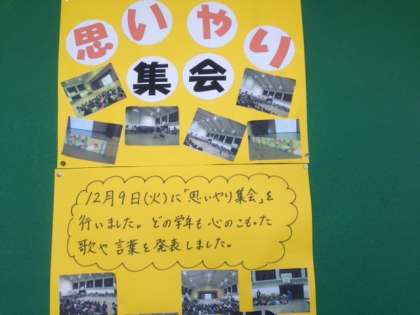 思いやり
集会
12月9日(火)に「思いやり集会」を
行いました。どの学年も心のこもった
歌や言葉を発表しました。